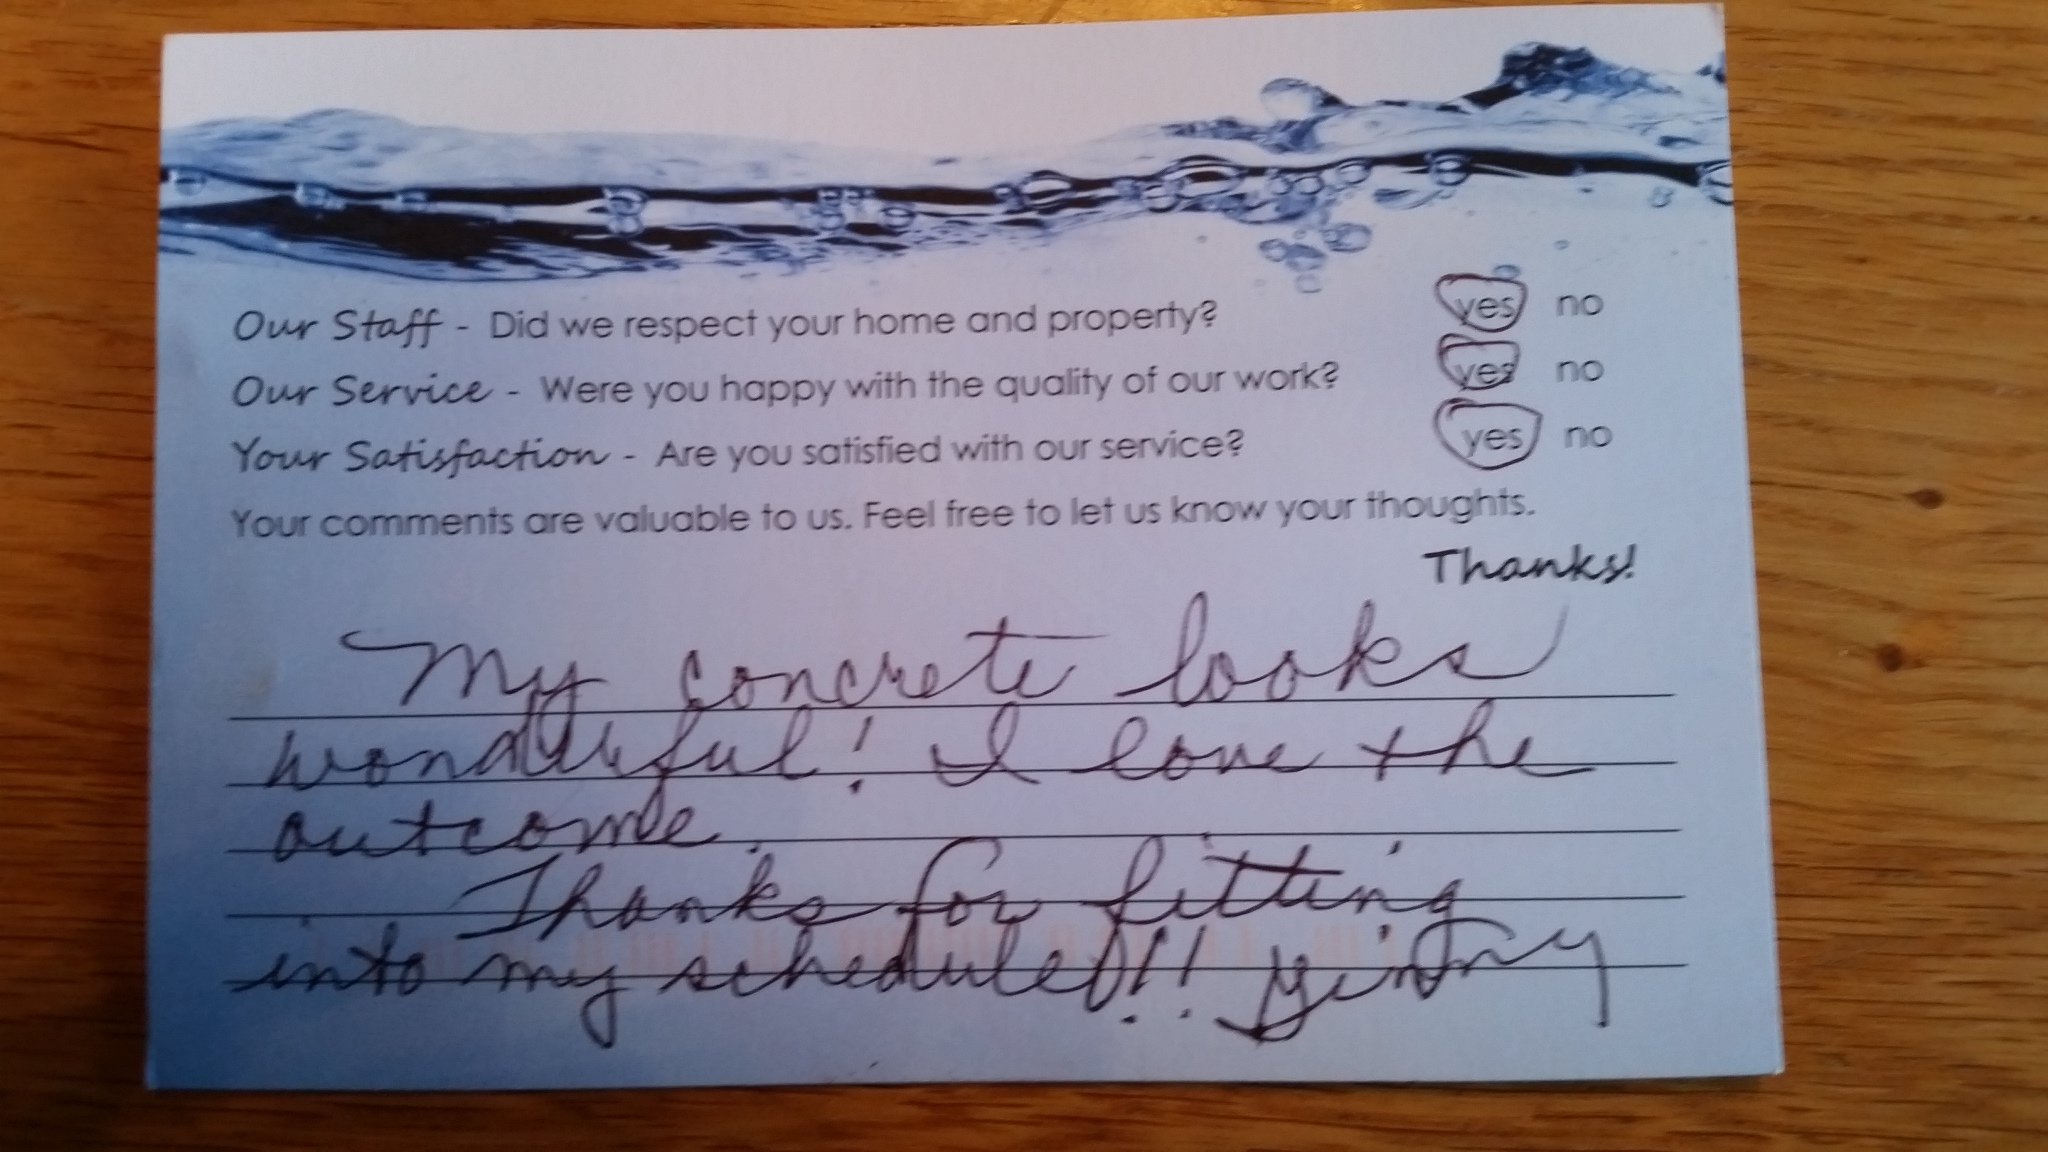 Our Staff - Did we respect your home and property? yes no
Our Service - Were you happy with the quality of our work? yes no
Your Satisfaction - Are you satisfied with our service? yes no
Your comments are valuable to us. Feel free to let us know your thoughts.
Thanks!
My concrete looks
wonderful! I love the
outcome.
Thanks for fitting
into my schedule!!! Ginny